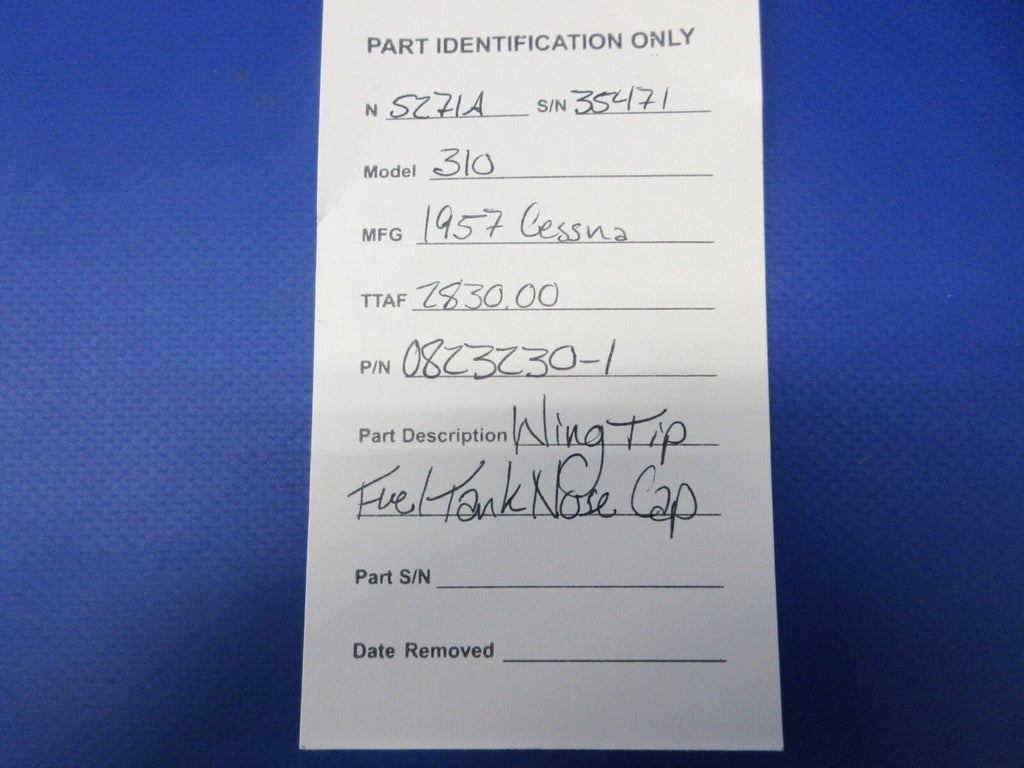 PART IDENTIFICATION ONLY
N 5271A S/N 35471
Model 310
MFG 1957 Cessna
TTAF 2830.00
P/N 0823230-1
Part Description Wing Tip
Fuel Tank Nose Cap
Part S/N
Date Removed